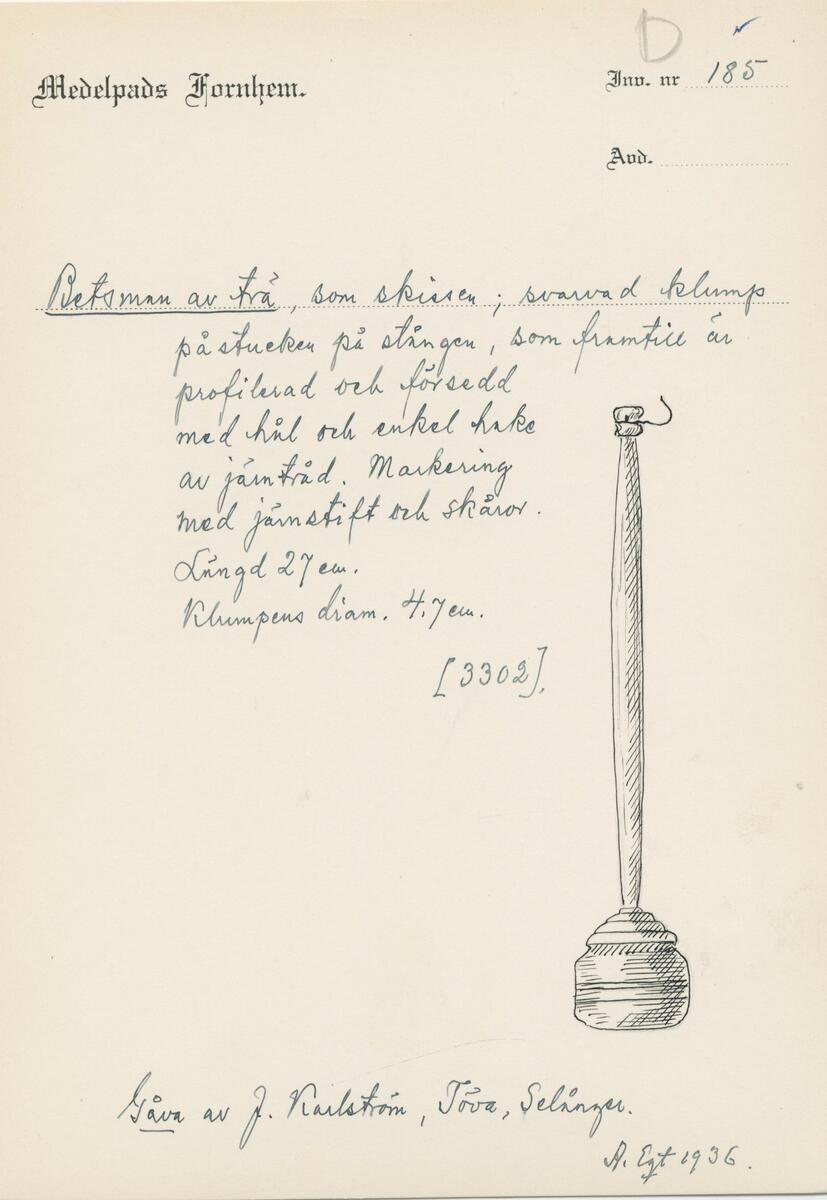 D
Medelpads Fornhem.
Inv. nr 185
Avd.
Betsman av trä, som skissen; svarvad klump
påstucken på stången, som framtill är
profilerad och försedd
med hål och enkel hake
av järntråd. Markering
med järnstift och skåror.
Längd 27 cm.
Klumpens diam. 4.7 cm.
[3302].
Gåva av J. Karlström, Töva, Selånger.
A. Egt 1936.